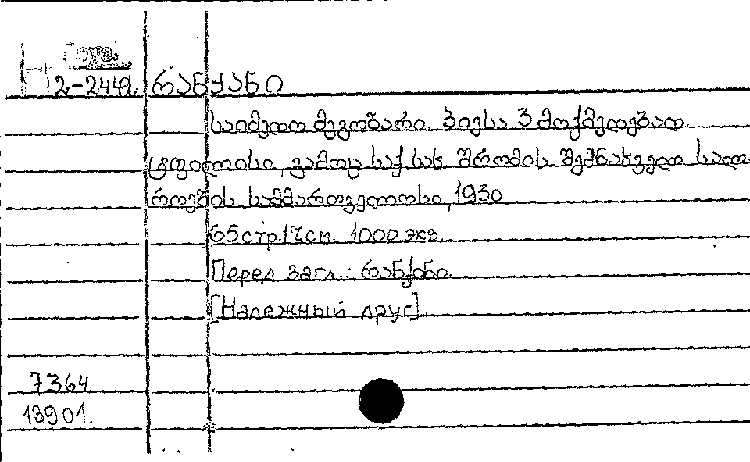 2-2442. რანყანი
საიმედო მეგობარი. პიესა 3 მოქმედებათ.
ტფილისი, გამოც. საქ. სახ. შრომის შემნახველ სალა
როების სამმართველოსი, 1930
65 стр. 17 см. 1000 экз.
Перед загл.: რანყანი.
[Надежный друг].
7364
13901.